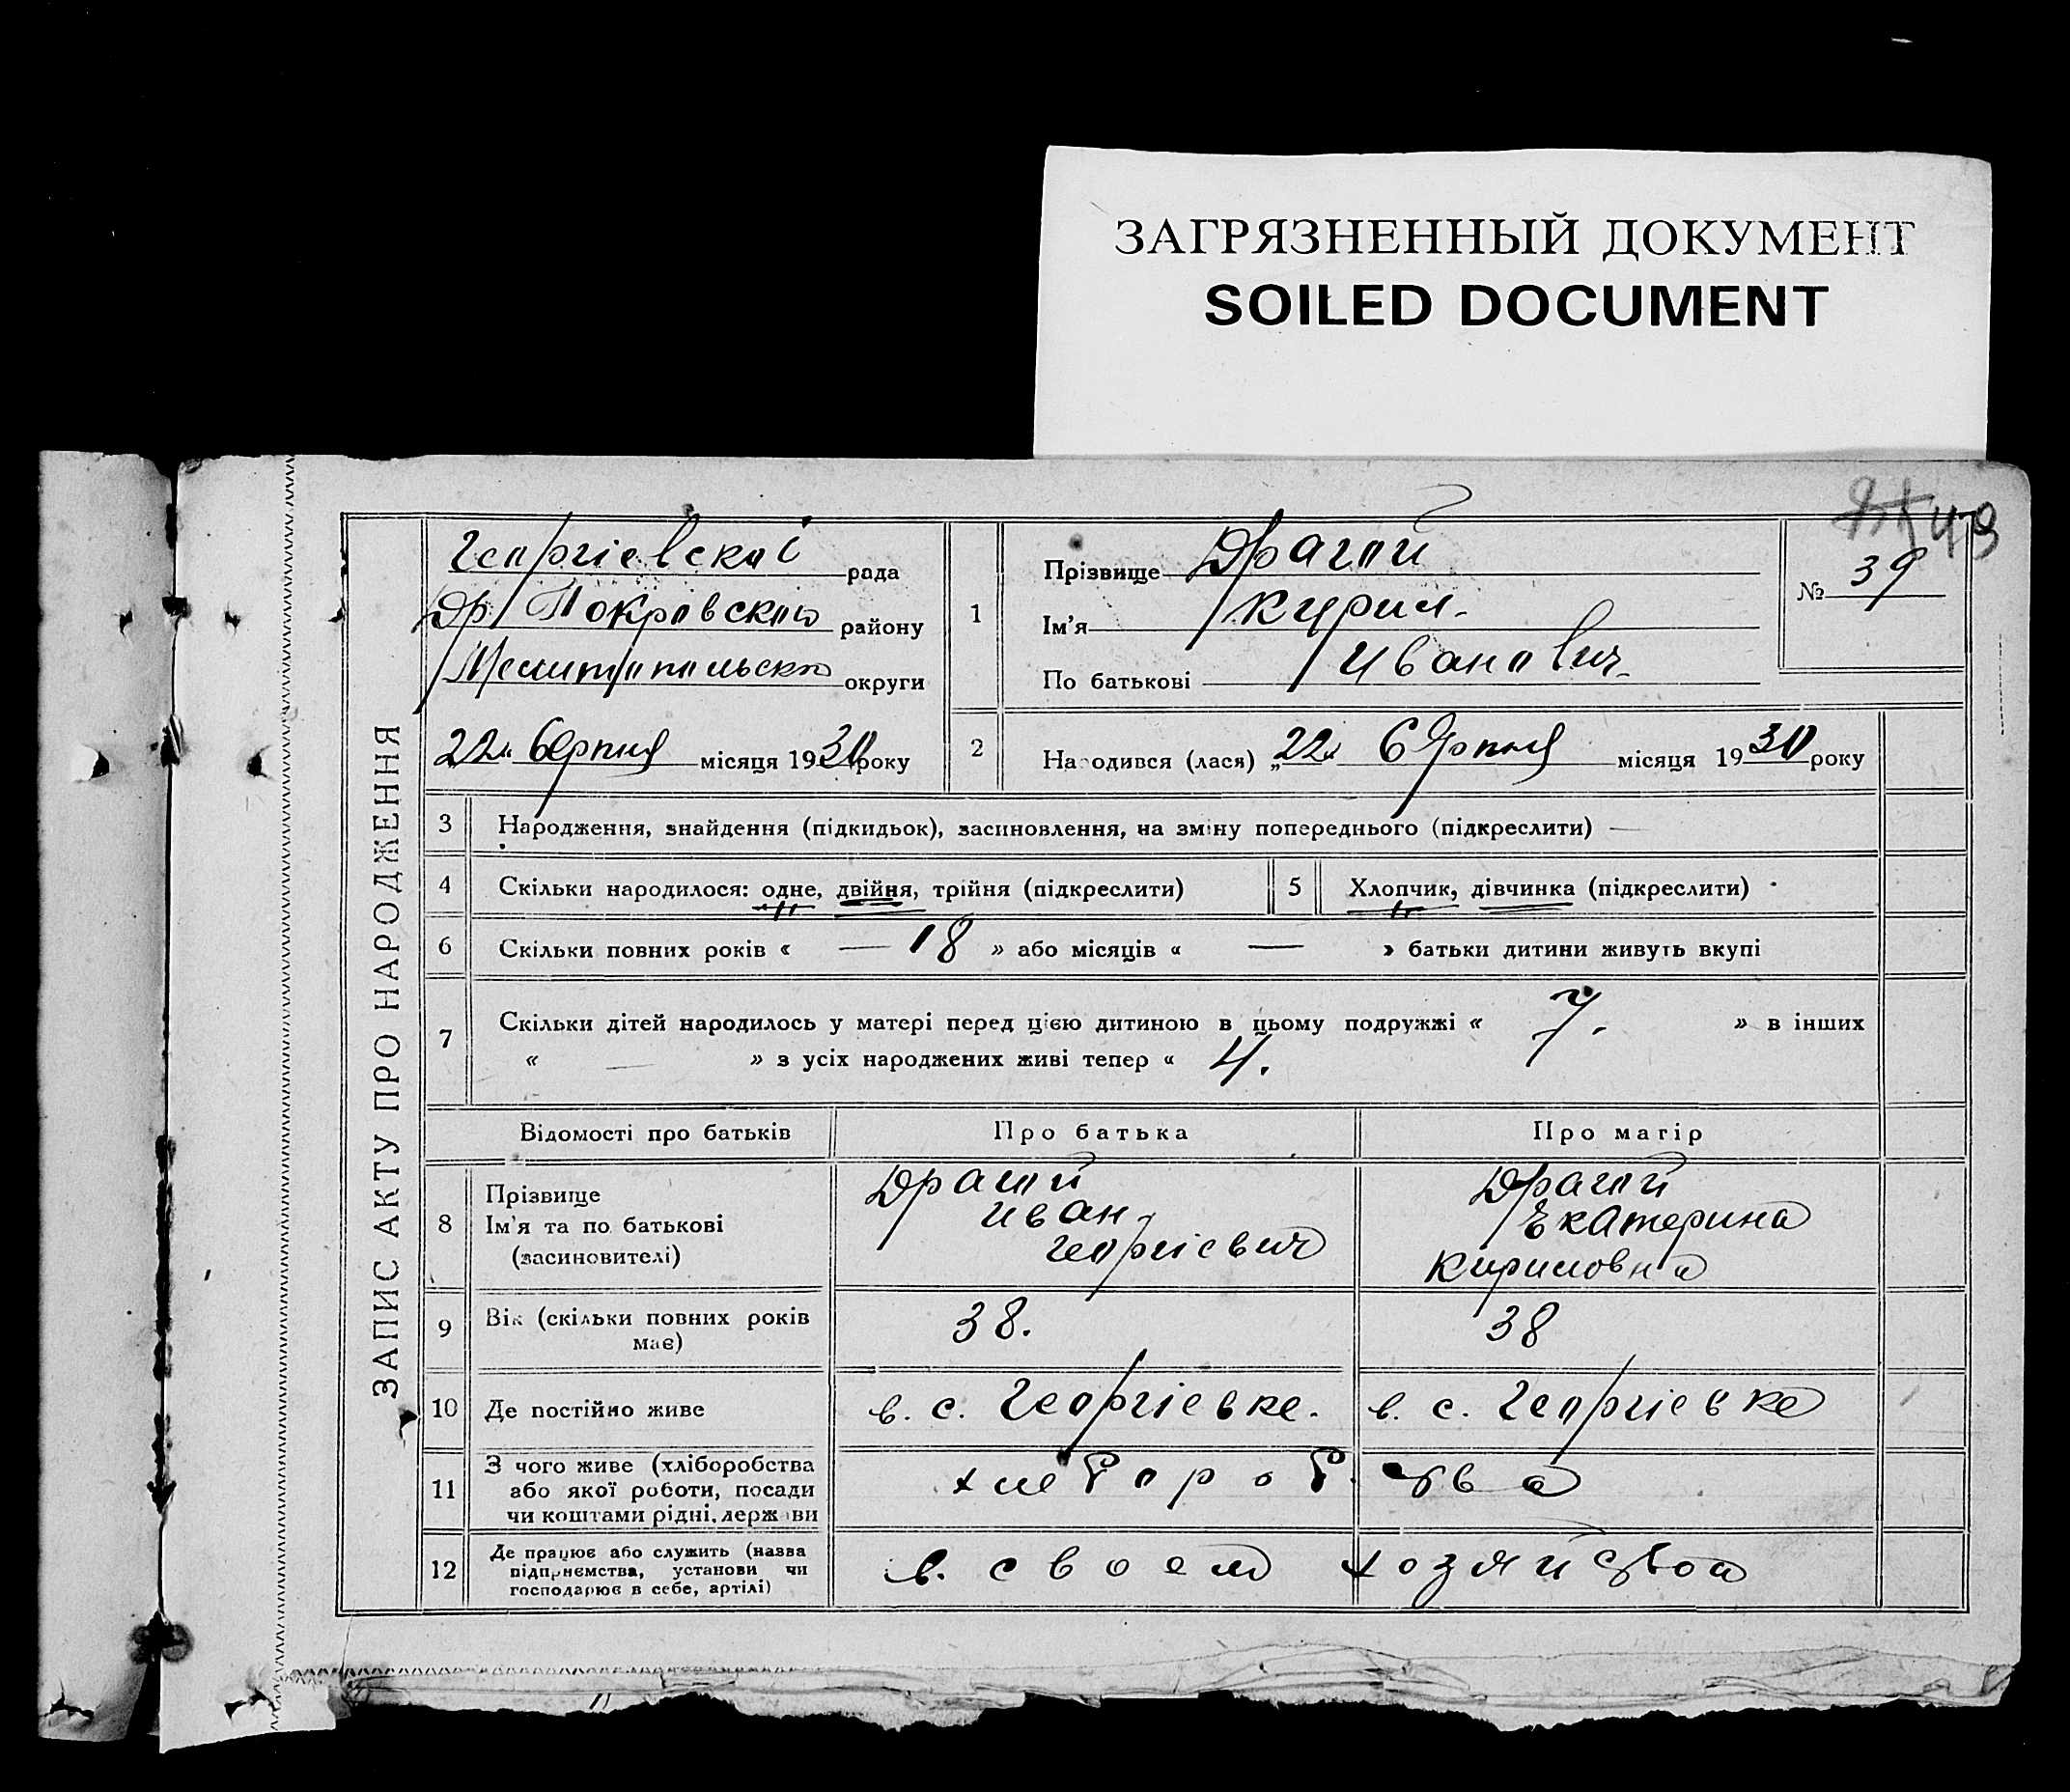 ЗАГРЯЗНЕННЫЙ ДОКУМЕНТ
SOILED DOCUMENT
49
ЗАПИС АКТУ ПРО НАРОДЖЕННЯ
Георгіевскаі рада
Др Покровского району
Мелитопольско округи
22 Серпня місяця 1930 року
1
Прізвище Драгой
Ім'я Курил.
По батькові Иванович.
№ 39
2
Народився (лася) „22 Серпня місяця 1930 року
3 Народження, знайдення (підкидьок), засиновлення, на зміну попереднього (підкреслити)
4 Скільки народилося: одне, двійня, трійня (підкреслити)
5 Хлопчик, дівчинка (підкреслити)
6 Скільки повних років « — 18 » або місяців « — » батьки дитини живуть вкупі
7 Скільки дітей народилось у матері перед цією дитиною в цьому подружжі « 7. » в інших
« — » з усіх народжених живі тепер « 4.
Відомості про батьків Про батька Про матір
8 Прізвище
Ім'я та по батькові
(засиновителі)
Драгой
Иван
Георгіевич
Драгой
Екатерина
Кириловна
9 Вік (скільки повних років
має)
38. 38
10 Де постійно живе в. с. Георгіевке. в. с. Георгіевке
11 З чого живе (хліборобства
або якої роботи, посади
чи коштами рідні, держави
хлеборобства
12 Де працює або служить (назва
підприємства, установи чи
господарює в себе, артілі)
в. своем хозяйстви